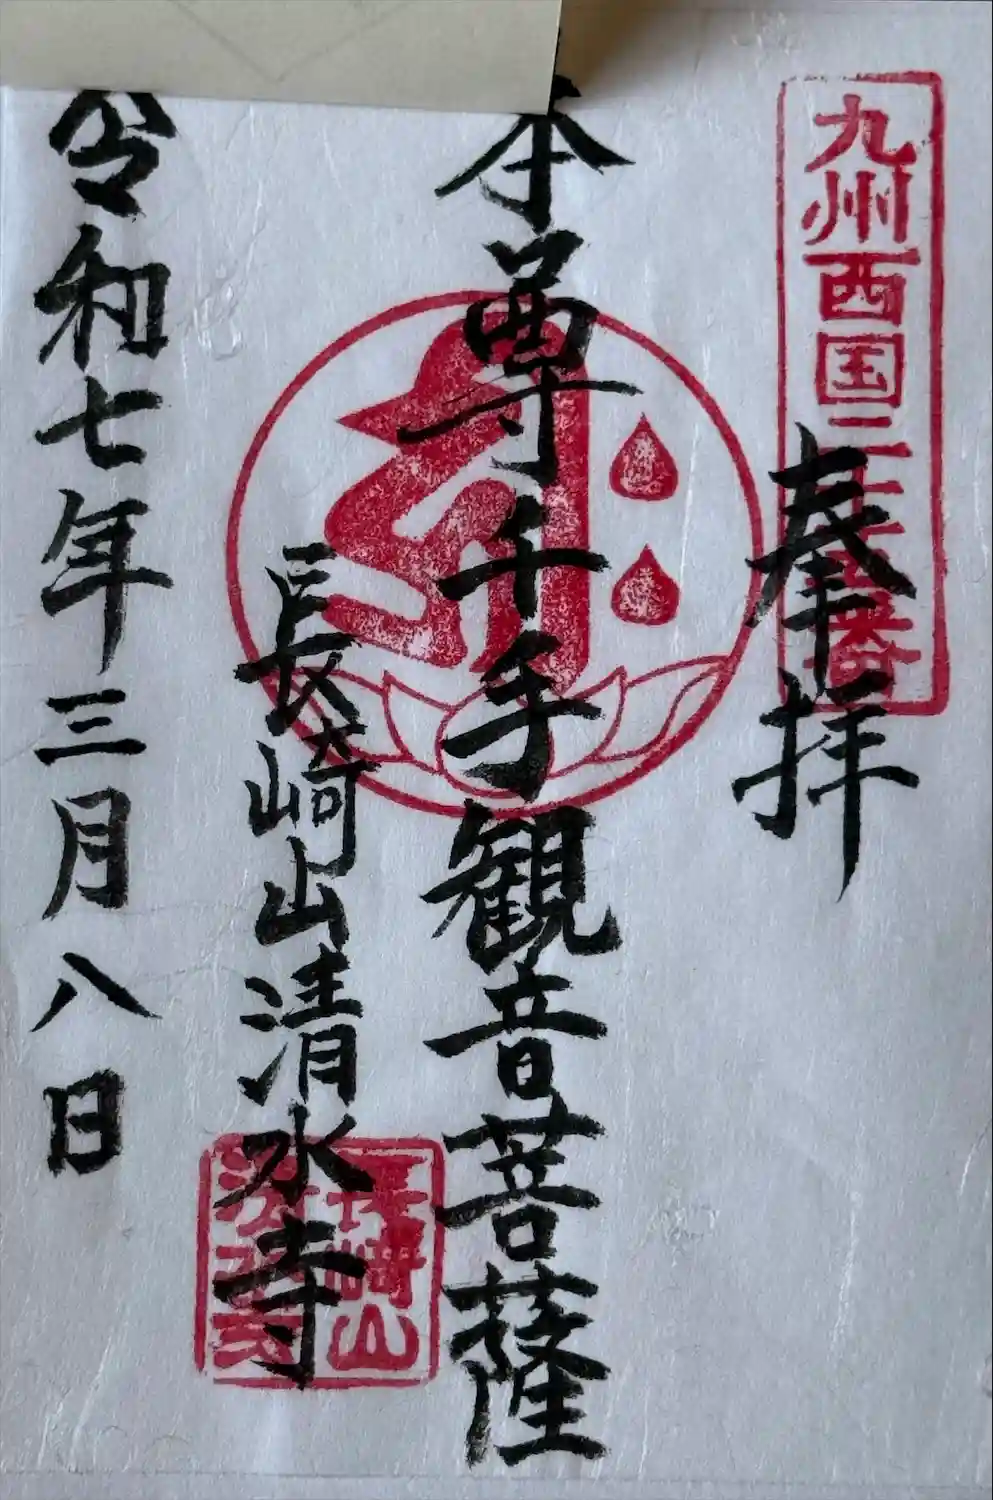 九州西国二十五番
奉拝
本尊千手観音菩薩
長崎山清水寺
長崎山
令和七年三月八日